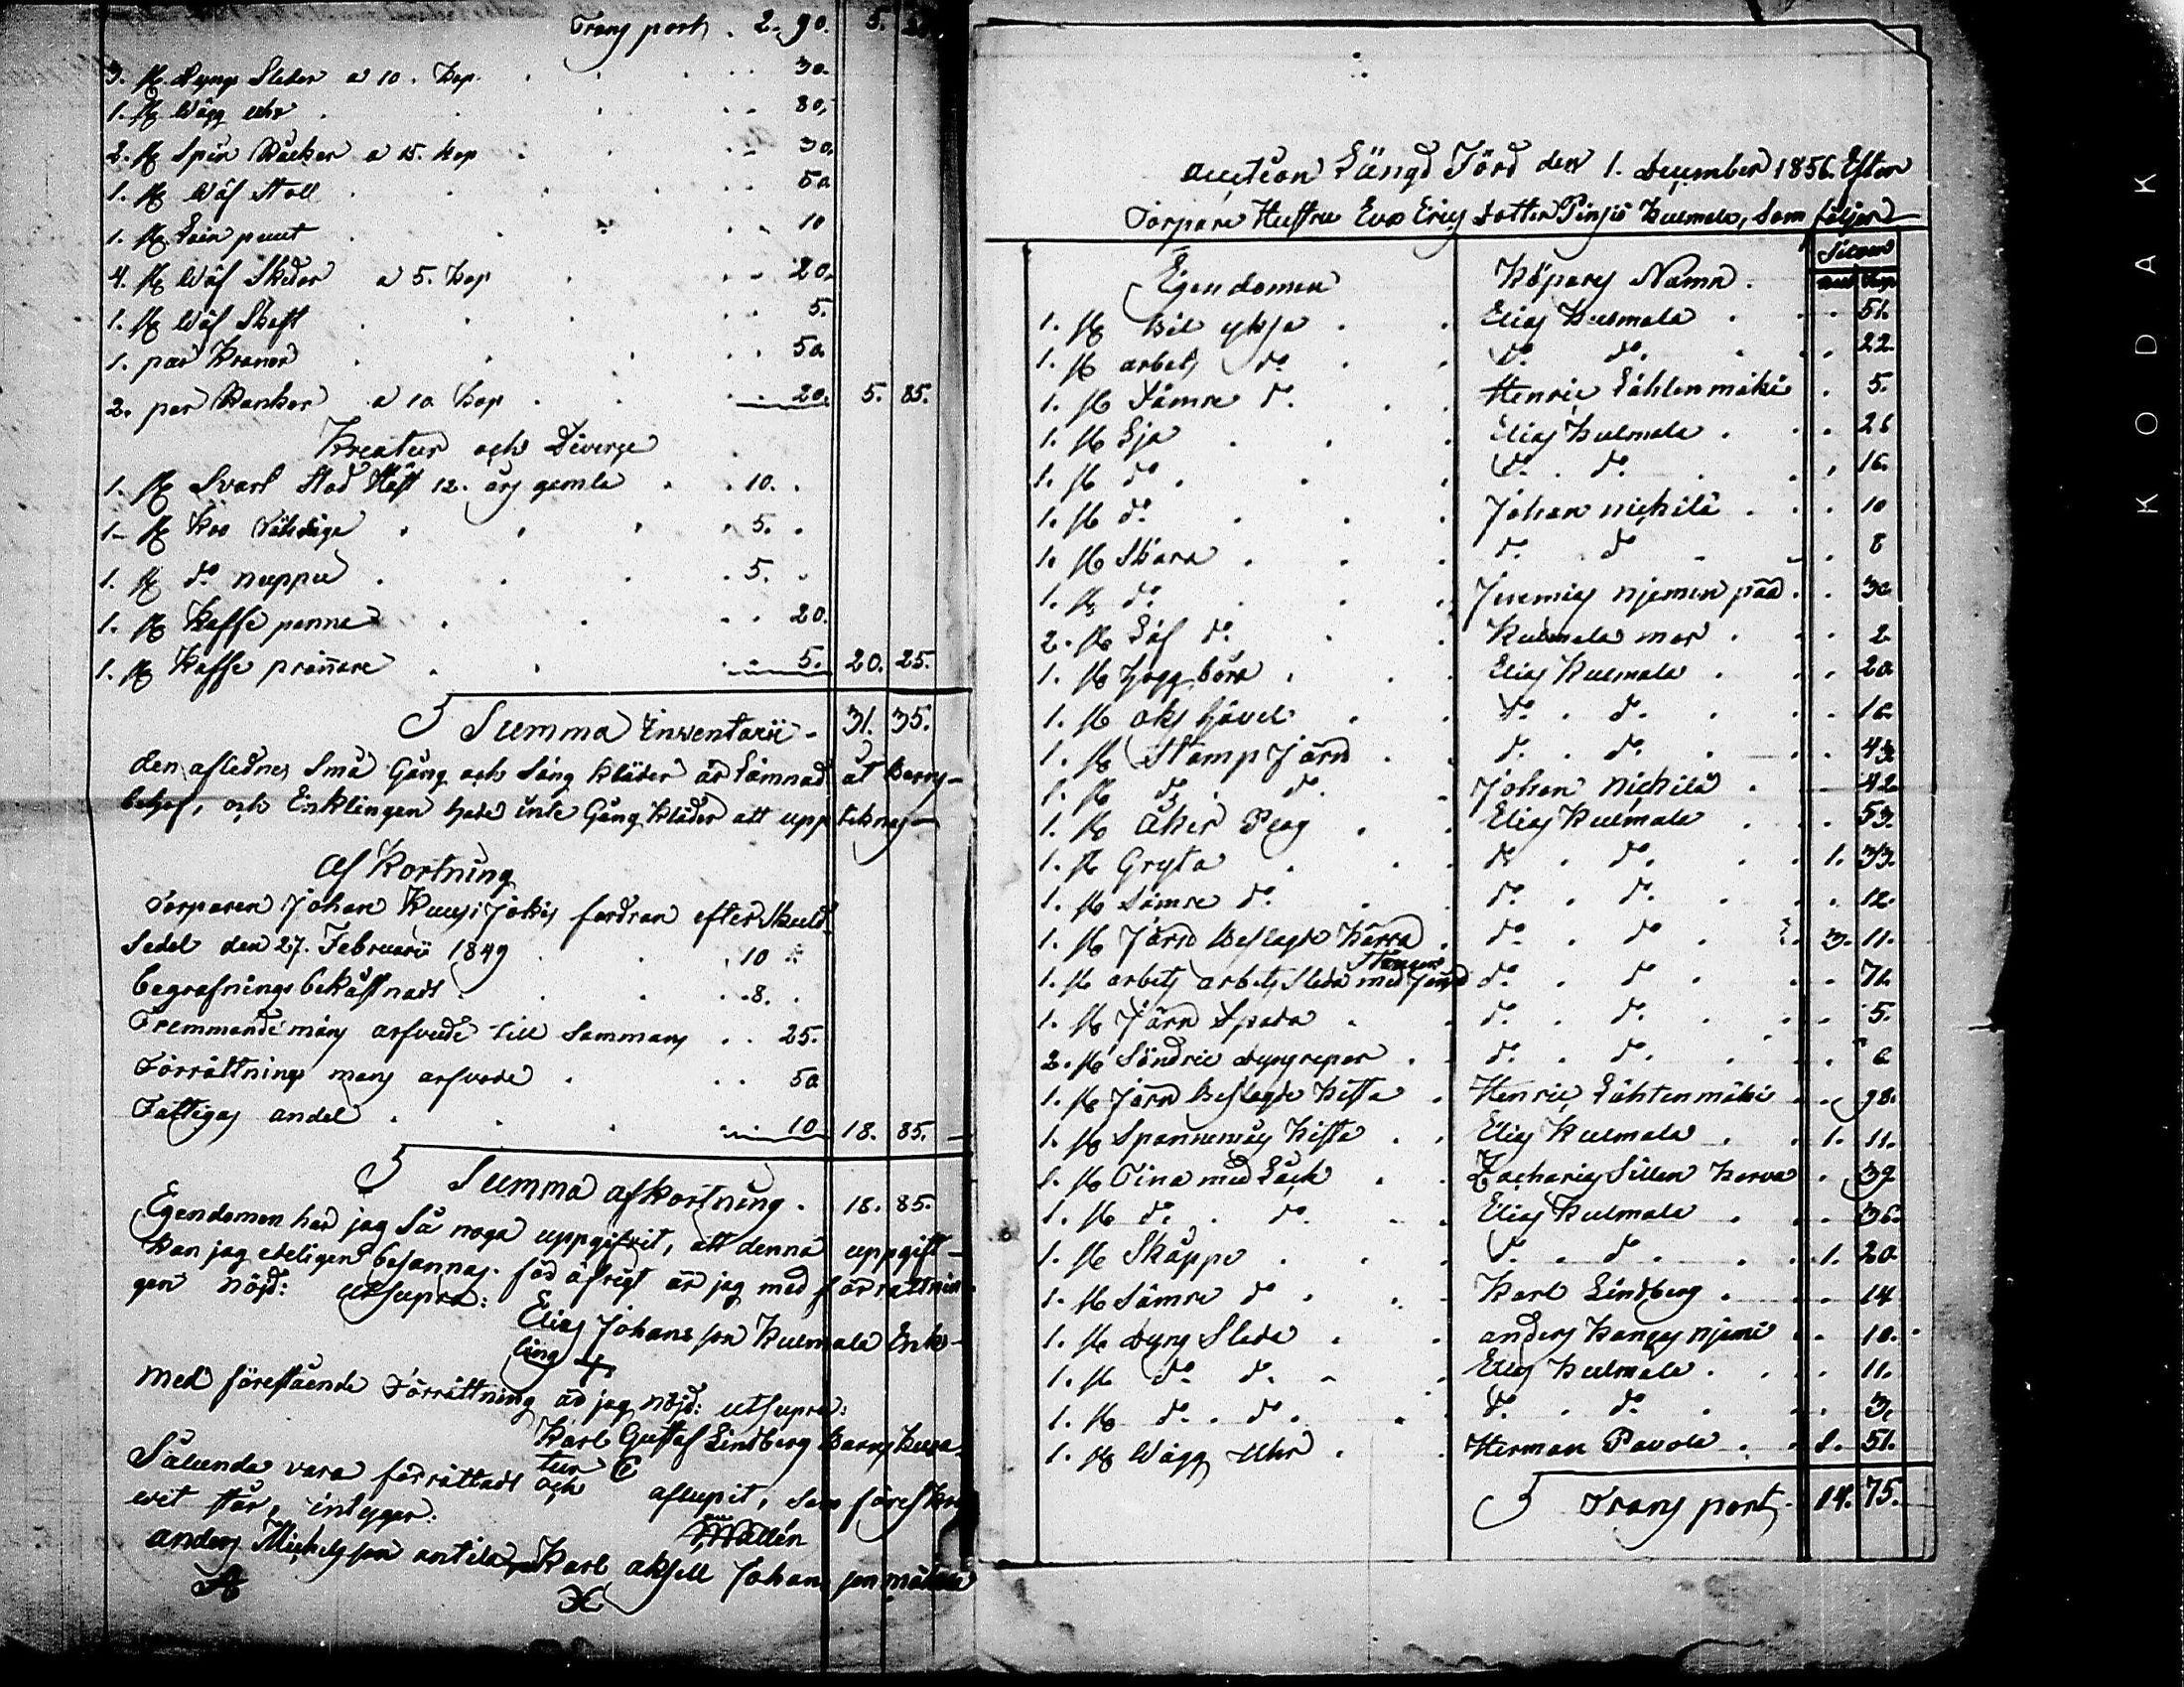 Transport . 2. 90. 5. 25
3. st. Dyng Sleder a 10. kop. 30.
1. st wägg uhr 80.
2. st Spin Råckar a 15. kop 30.
1. st wäf stoll 50
1. st. 10
4. st wäf Skeder a 5. kop 20.
1. st wäf Skeft 5.
1. par 50.
2. par a 10 kop 20. 5. 85.
Kreatur och Diverse
1. st Svart Stod Häst 12. års gamla 10.
1. st Koo 5.
1. st do nuppu 5.
1. st Kaffe panna 20.
1. st Kaffe prännare 5. 20. 25.
Summa Inventarii 31. 35.
den aflednes Små Gång och Säng kläder är Lämnad åt Barns
behof, och Enklingen hade inte Gång kläder att uppteknas
af Kortning
Torparen Johan Kuusijokis fordran efter Skuld
Sedel den 27. Februarii 1849 10
begrafnings bekåstnadt 8.
Fremmande mäns arfvude till Sammans 25.
Förrättnings mans arfvode 50
Fattigas andel 10 18. 85.
Summa afkortning. 18. 85.
Egendomen har jag Så noga uppgifvit, att denna uppgift
kan jag edeligen besannas. för öfrigt är jag med förrättnin
gen nöjd: utsupra:
Elias Johans son Kulmala Enk-
ling +
med föreståënde Förrättning är jag nöjd: utsupra:
Karl Gustaf Lindberg Barns Kura-
tur
Sålunda vara förrättadt och aflupit, som föreskrif
wit står, intygar.
Mallén
anders Michels son antila Karl aksell Johans son
auction Längd Förd den 1. December 1856. Efter
Torpare Hustru Eva Erics dotter Pinsiö Kulmala, Som följer
Silver
Egendomen Köpars Namn. Rub Kop
1. st Elias Kulmala 51.
1. st arbets do. do. do. 22.
1. st Sämre do. Henric Lähtenmäki 5.
1. st Lja Elias Kulmala 26
1. st do. do. do. 16.
1. st do. Johan nichilä 10
1. st Skära do. do 8
1. st do. Jeremias njemenpää 30.
2. st Löf do. Kulmala mor 2.
1. st hygg bora Elias Kulmala 20.
1. st oks hövel do. do. 16.
1. st Stamp Järn do. do. 43.
1. st do. do. Johan Nichilä 42.
1. st Åker Plog Elias Kulmala 53.
1. st Gryta do. do. 1. 33.
1. st Sämre do. do. do. 12.
1. st Järn Beslagde Kärra do. do. 3. 11.
1. st arbets arbets Sleda med Järn Stänger do. do. 71.
1. st Järn Spada do. do. 5.
2. st Söndrie dyngrepar do. do. 6
1. st Järn Beslagde Kista Henric Lähtenmäki 98.
1. st Spannemåls Kista Elias Kulmala 1. 11.
1. st Tina med Låck Zacharias Sillen Karva 39
1. st do. do. Elias Kulmala 36.
1. st Skäppo do. do. 1. 20.
1. st Sämre do Karl Lindberg 14
1. st Dyng Slede anders Kangasnjemi 10.
1. st do. do. Elias Kulmala 11.
1. st do. do. do. do. 3.
1. st Wägg Uhr Herman Pavola 1. 51.
Transport 14. 75.
KODAK